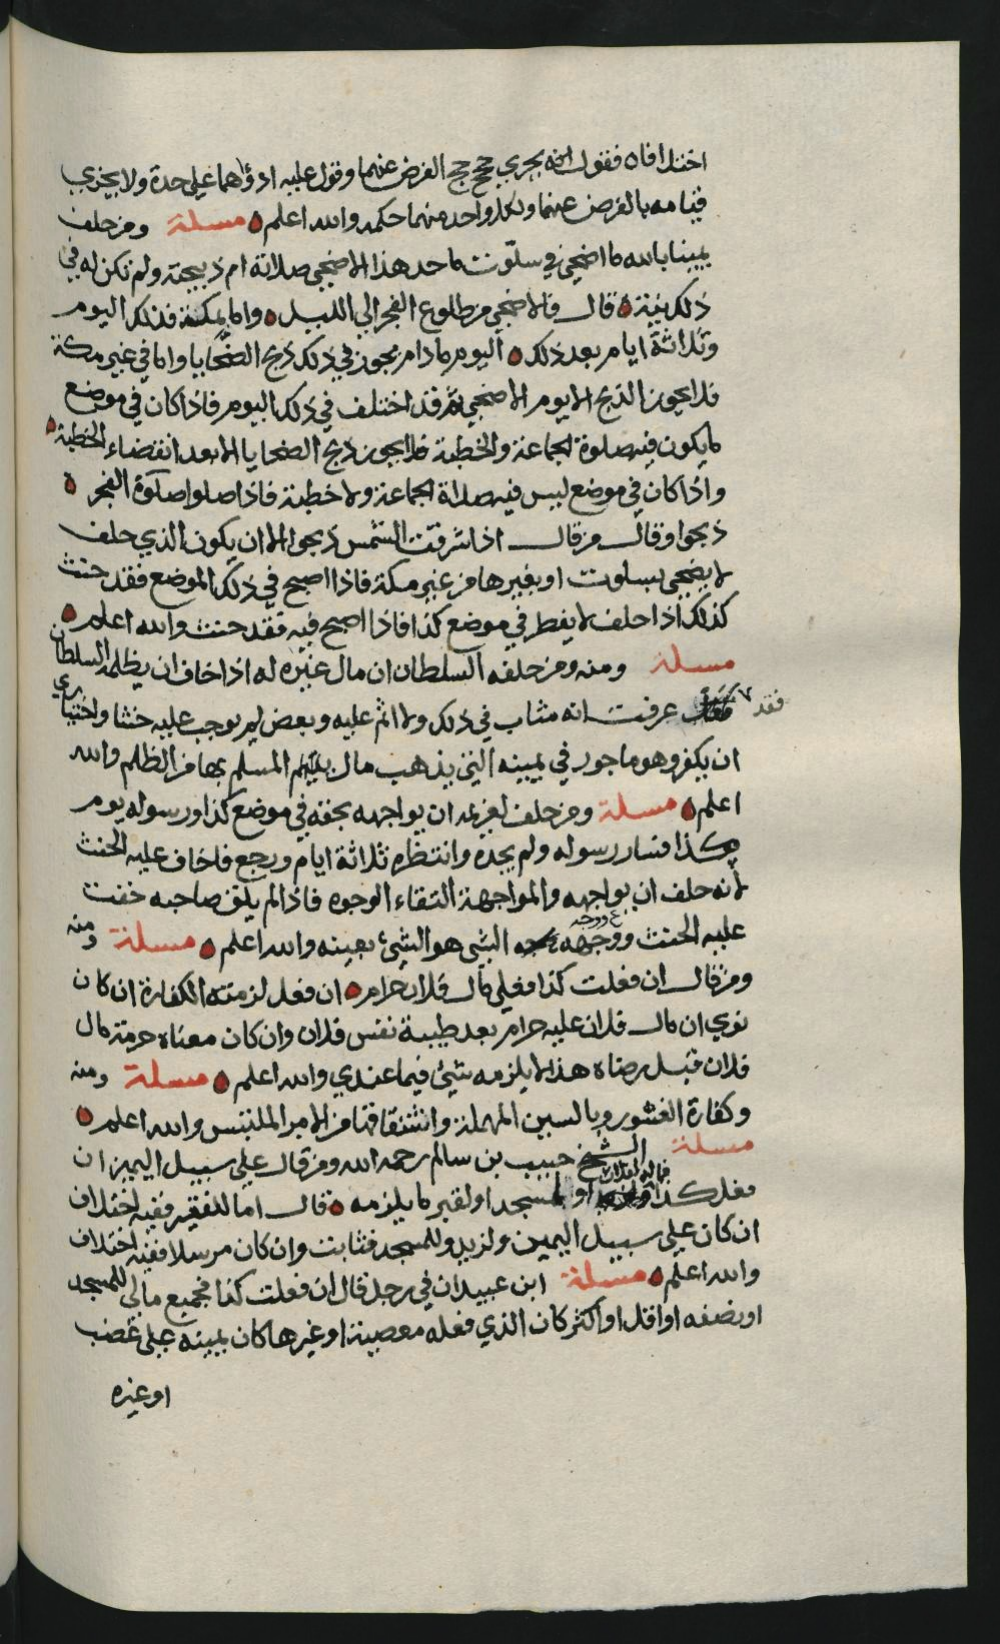 اختلافان فقول انه يجزي حج حج الفرض عنهما وقول عليه اداؤهما على حدة ولا يجزي
قيامه بالفرض عنهما ولكل واحد منهما حكمه والله اعلم مسئلة ومن حلف
يمينا بالله ما اضحي في سلوت ما حد هذا الاضحى صلاته ام ذبيحته ولم تكن له في
ذلك نية قال فالاضحى من طلوع الفجر الى الليل واما بمكة فذلك اليوم
وثلاثة ايام بعد ذلك اليوم مادام يجوز في ذلك ذبح الضحايا واما في غير مكة
فلا يجوز الذبح الا يوم الاضحى ثم قد اختلف في ذلك اليوم فاذا كان في موضع
ما يكون فيه صلوة الجماعة والخطبة فلا يجوز ذبح الضحايا الا بعد انقضاء الخطبة
واذا كان في موضع ليس فيه صلاة الجماعة ولا خطبة فاذا صلوا صلوة الفجر
ذبحوا وقال من قال اذا شرقت الشمس ذبحوا الا ان يكون الذي حلف
لا يضحي بسلوت او بغيرها من غير مكة فاذا اصبح في ذلك الموضع فقد حنث
كذلك اذا حلف لا يفطر في موضع كذا فاذا اصبح فيه فقد حنث والله اعلم
مسئلة ومنه ومن حلفه السلطان ان مال غيره له اذا خاف ان يظلمه السلطان
فقد عرفت انه مثاب في ذلك ولا اثم عليه وبعض لم يوجب عليه حنثا واختياري
ان يكفر وهو ماجور في يمينه التي يذهب مال يتيم المسلم بها من الظلم والله
اعلم مسئلة ومن حلف لغريمه ان يواجهه بحقه في موضع كذا ورسوله يوم
كذا فسار رسوله ولم يجده وانتظره ثلاثة ايام ورجع فاخاف عليه الحنث
لانه حلف ان يواجهه والمواجهة التقاء الوجوه فاذا لم يلق صاحبه خفت
عليه الحنث ووجهه الشي هو الشيء بعينه والله اعلم مسئلة ومنه
ومن قال ان فعلت كذا فعلي مال فلان حرام ان فعل لزمته الكفارة ان كان
نوى ان مال فلان عليه حرام بعد طيبة نفس فلان وان كان معناه حرمة مال
فلان قبل رضاه هذا لا يلزمه شيء فيما عندي والله اعلم مسئلة ومنه
وكفارة الغشور وبالسين المهملة وانشتقاقها من الامر الملتبس والله اعلم
مسئلة الشيخ حبيب بن سالم رحمه الله ومن قال على سبيل اليمين ان
فعل كذا فماله لفلان او لمسجد او لقبر ما يلزمه قال اما للفقير ففيه اختلاف
ان كان على سبيل اليمين ولزيد وللمسجد فثابت وان كان مرسلا ففيه اختلاف
والله اعلم مسئلة ابن عبيدان في رجل قال ان فعلت كذا فجميع مالي للمسجد
او نصفه او اقل او اكثر كان الذي فعله معصية او غيرها كان يمينه على غضب
او غيره